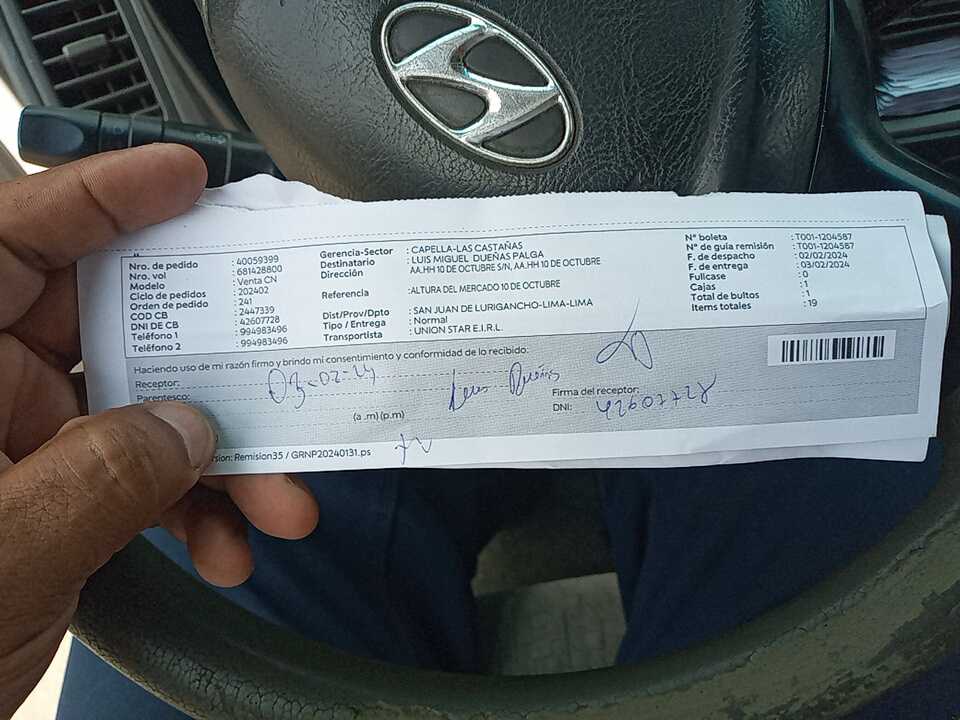 Nro. de pedido : 40059399
Nro. vol : 681428800
Modelo : Venta CN
Ciclo de pedidos : 202402
Orden de pedido : 241
COD CB : 2447339
DNI DE CB : 42607728
Teléfono 1 : 994983496
Teléfono 2 : 994983496
Gerencia-Sector : CAPELLA-LAS CASTAÑAS
Destinatario : LUIS MIGUEL DUEÑAS PALGA
Dirección AA.HH 10 DE OCTUBRE S/N, AA.HH 10 DE OCTUBRE
Referencia :ALTURA DEL MERCADO 10 DE OCTUBRE
Dist/Prov/Dpto : SAN JUAN DE LURIGANCHO-LIMA-LIMA
Tipo / Entrega : Normal
Transportista : UNION STAR E.I.R.L.
N° boleta : T001-1204587
N° de guía remisión : T001-1204587
F. de despacho : 02/02/2024
F. de entrega : 03/02/2024
Fullcase : 0
Cajas : 1
Total de bultos : 1
Items totales : 19
Haciendo uso de mi razón firmo y brindo mi consentimiento y conformidad de lo recibido.
Receptor: 03-02-24 Luis Dueñas
Parentesco:
Firma del receptor:
(a .m) (p.m)
DNI: 42607728
rsion: Remision35 / GRNP20240131.ps